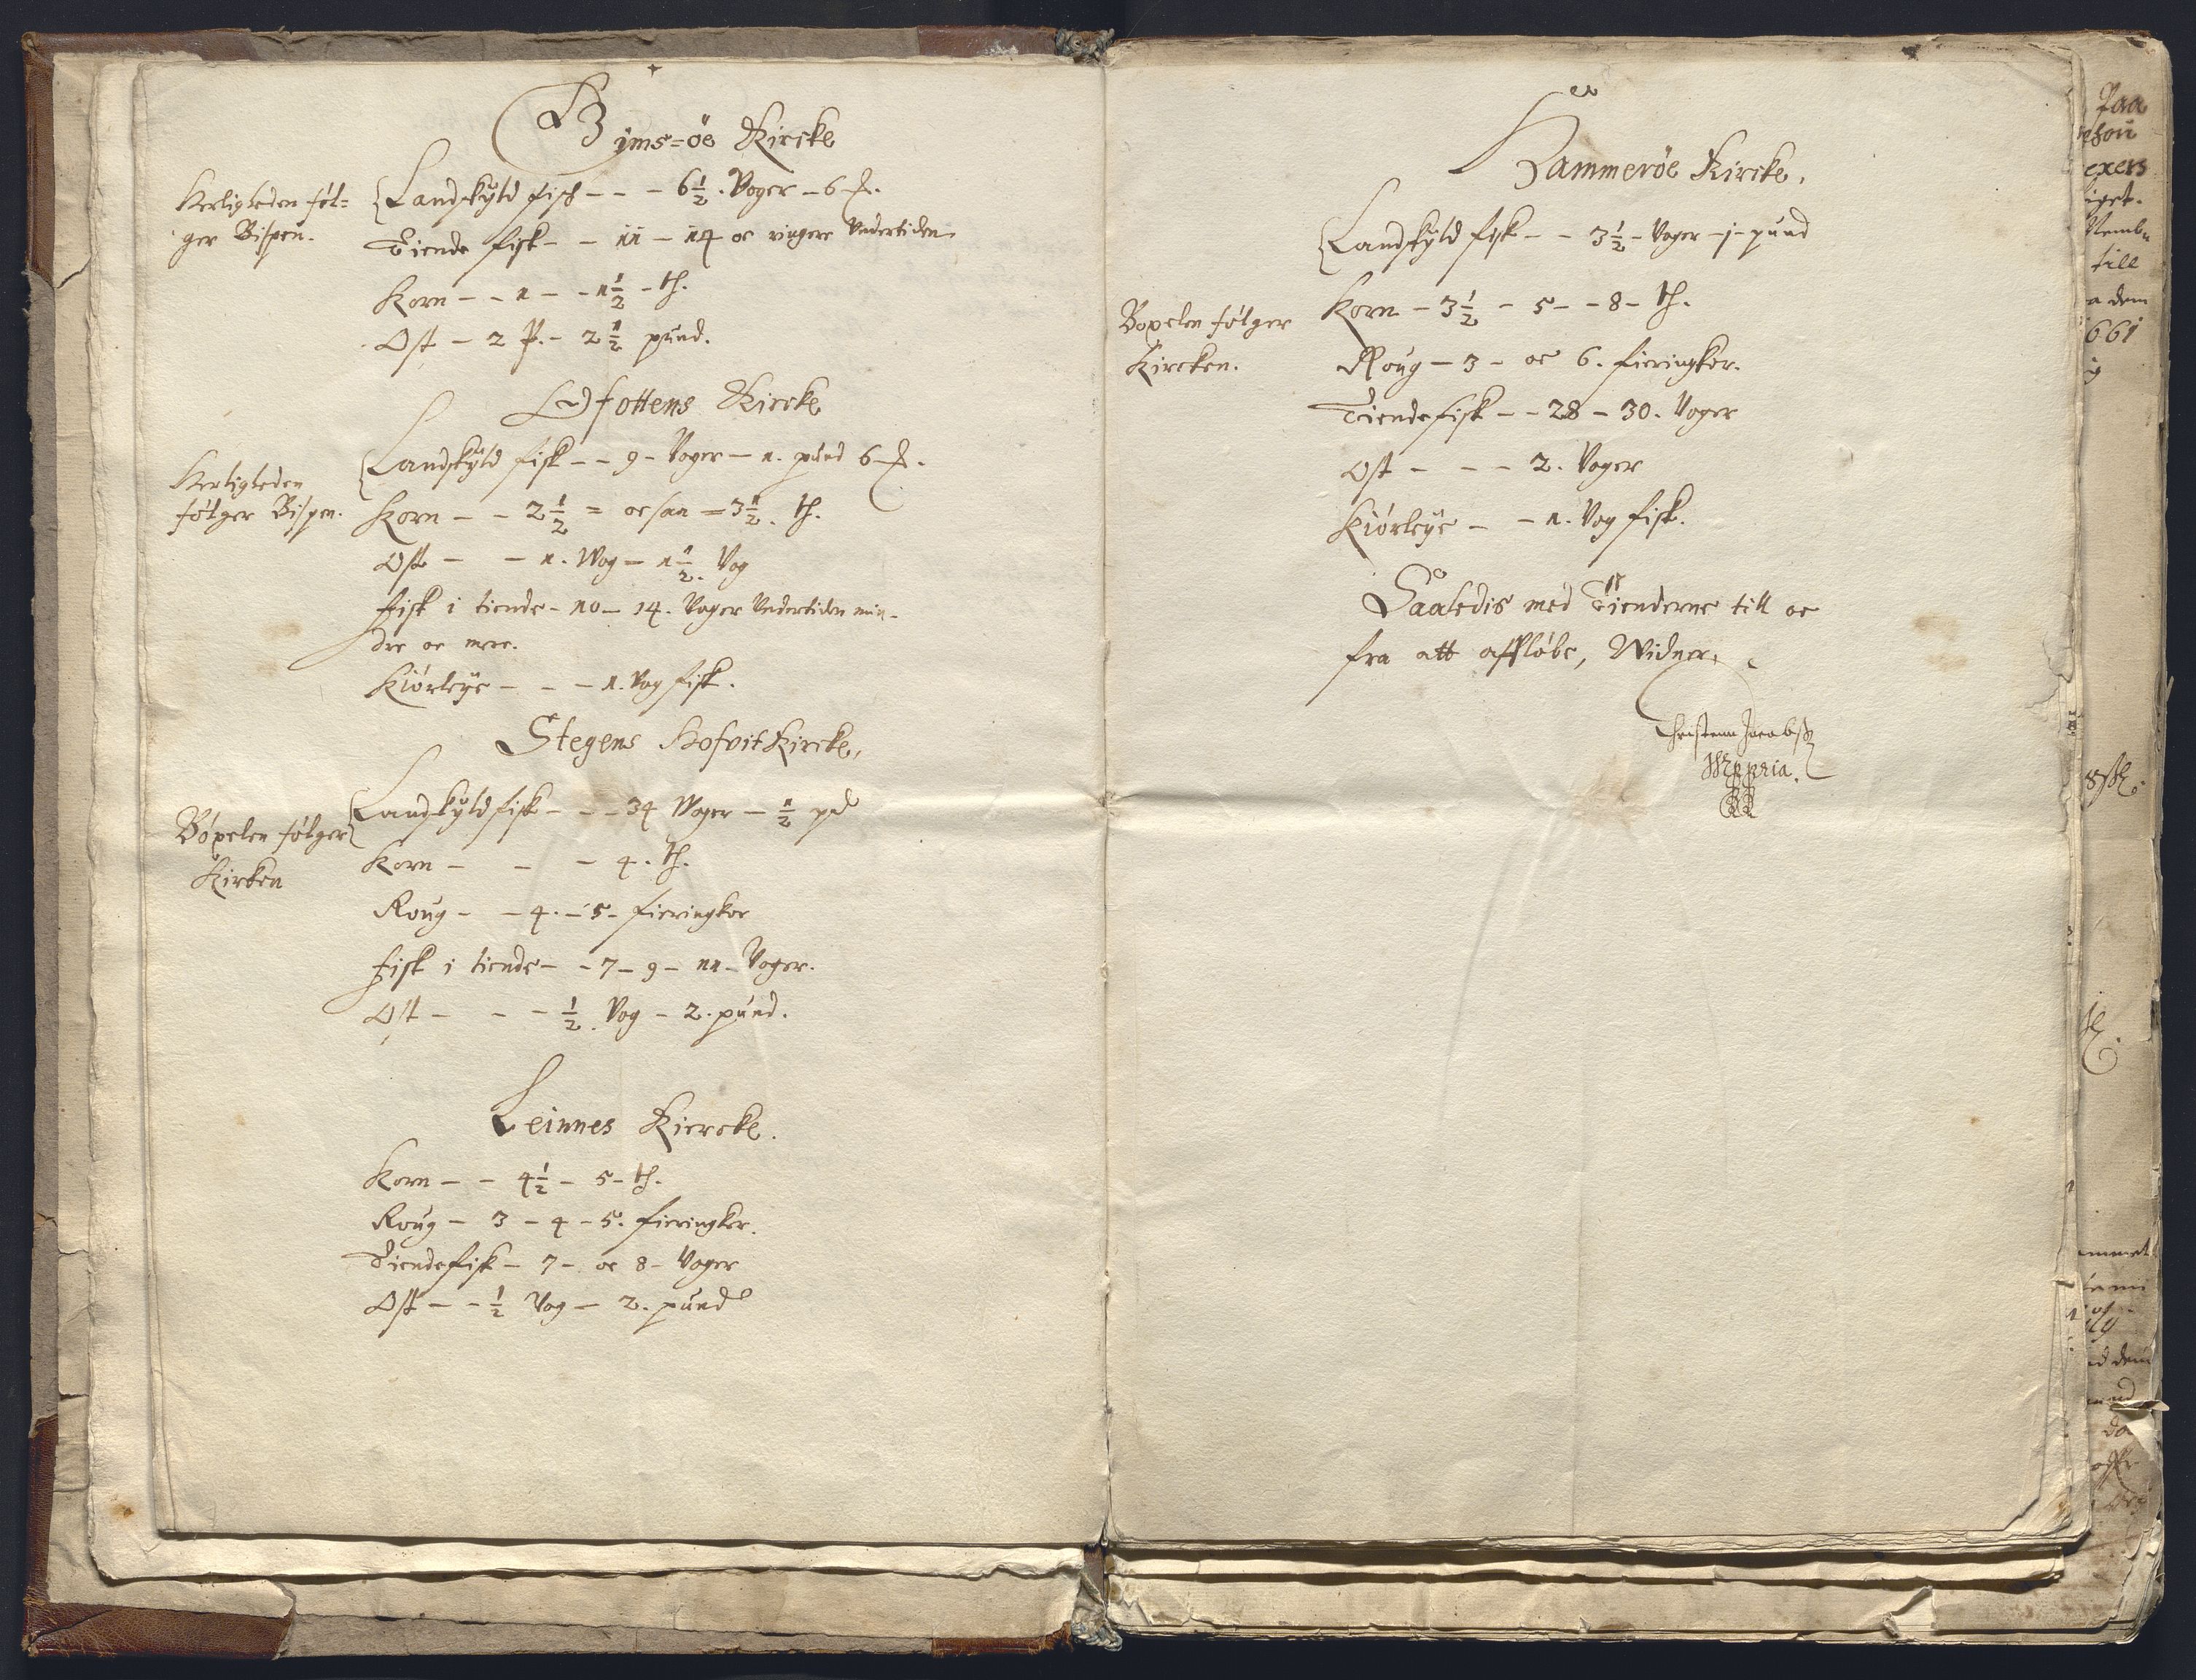 Gims=öe Kircke
Herligheden föl=
ger Bispen.
Landskyld fisk - - - 6½. Voger - 6 ℔.
Tiende fisk - - 11 - 14 oc ringere Undertiden
Korn - - 1 - - 1½ - tħ.
Ost - 2 P. - 2½ pund.
Offottens Kircke
Herligheden
fölger Bispen.
Landskyld fisk - - 9 - Voger - 1. pund 6 ℔.
Korn - - 2½ = oc saa = 3½. tħ.
Ost - - 1. Wog - 1½. Vog
fisk i tiende - 10 - 14. Voger Undertiden min-
dre oc mere.
Kiörleye - - - 1. Vog fisk.
Stegens Hofvit Kircke,
Böxelen fölger
Kirken
Landskyld fisk - - - 34 Woger - ½ pd
Korn - - - 4. tħ.
Roug - - 4. - 5 - fieringker
fisk i tiende - - 7 - 9 - 11 - Voger.
Ost - - - ½. Vog - 2. pund.
Leinnes Kiercke.
Korn - - 4½ - 5 - tħ.
Roug - 3 - 4 - 5. fieringker.
Tiendefisk - 7 - oc 8 - Voger
Ost - - ½ Vog - 2. pund
Hammeröe Kircke,
Landskyld fisk - - 3½ - Voger - j - pund
Boxelen fölger
Kircken.
Korn - 3½ - 5 - - 8 - tħ.
Roug - 3 - oc 6. fieringker.
Tiendefisk - - 28 - 30. Voger
Ost - - - 2. Voger
Kiörleye - - 1. Vog fisk.
Saaledis med Tienderne till oc
fra att affløbe, Widner,
Christenn Jacobsß
Mppria.